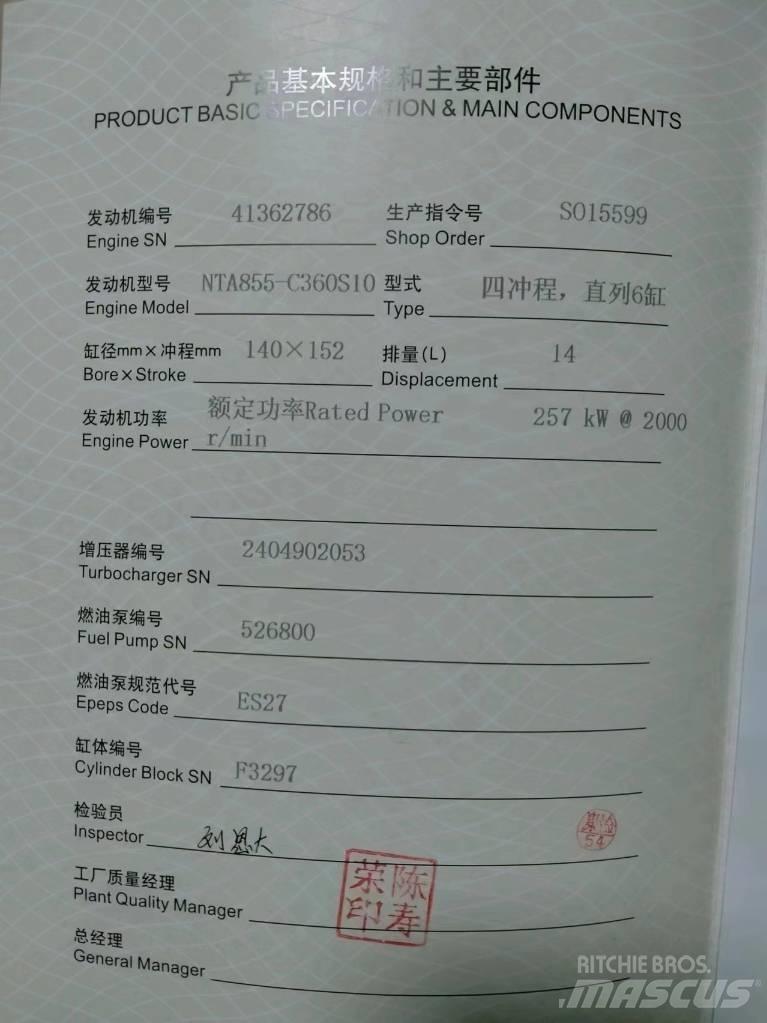 产品基本规格和主要部件
PRODUCT BASIC SPECIFICATION & MAIN COMPONENTS
发动机编号 41362786 生产指令号 SO15599
Engine SN Shop Order
发动机型号 NTA855-C360S10 型式 四冲程，直列6缸
Engine Model Type
缸径mm×冲程mm 140×152 排量(L) 14
Bore×Stroke Displacement
发动机功率 额定功率Rated Power 257 kW @ 2000
Engine Power r/min
增压器编号 2404902053
Turbocharger SN
燃油泵编号 526800
Fuel Pump SN
燃油泵规范代号 ES27
Epeps Code
缸体编号 F3297
Cylinder Block SN
检验员
Inspector 刘
54
工厂质量经理
Plant Quality Manager
荣陈
印寿
总经理
General Manager
RITCHIE BROS.
MASCUS